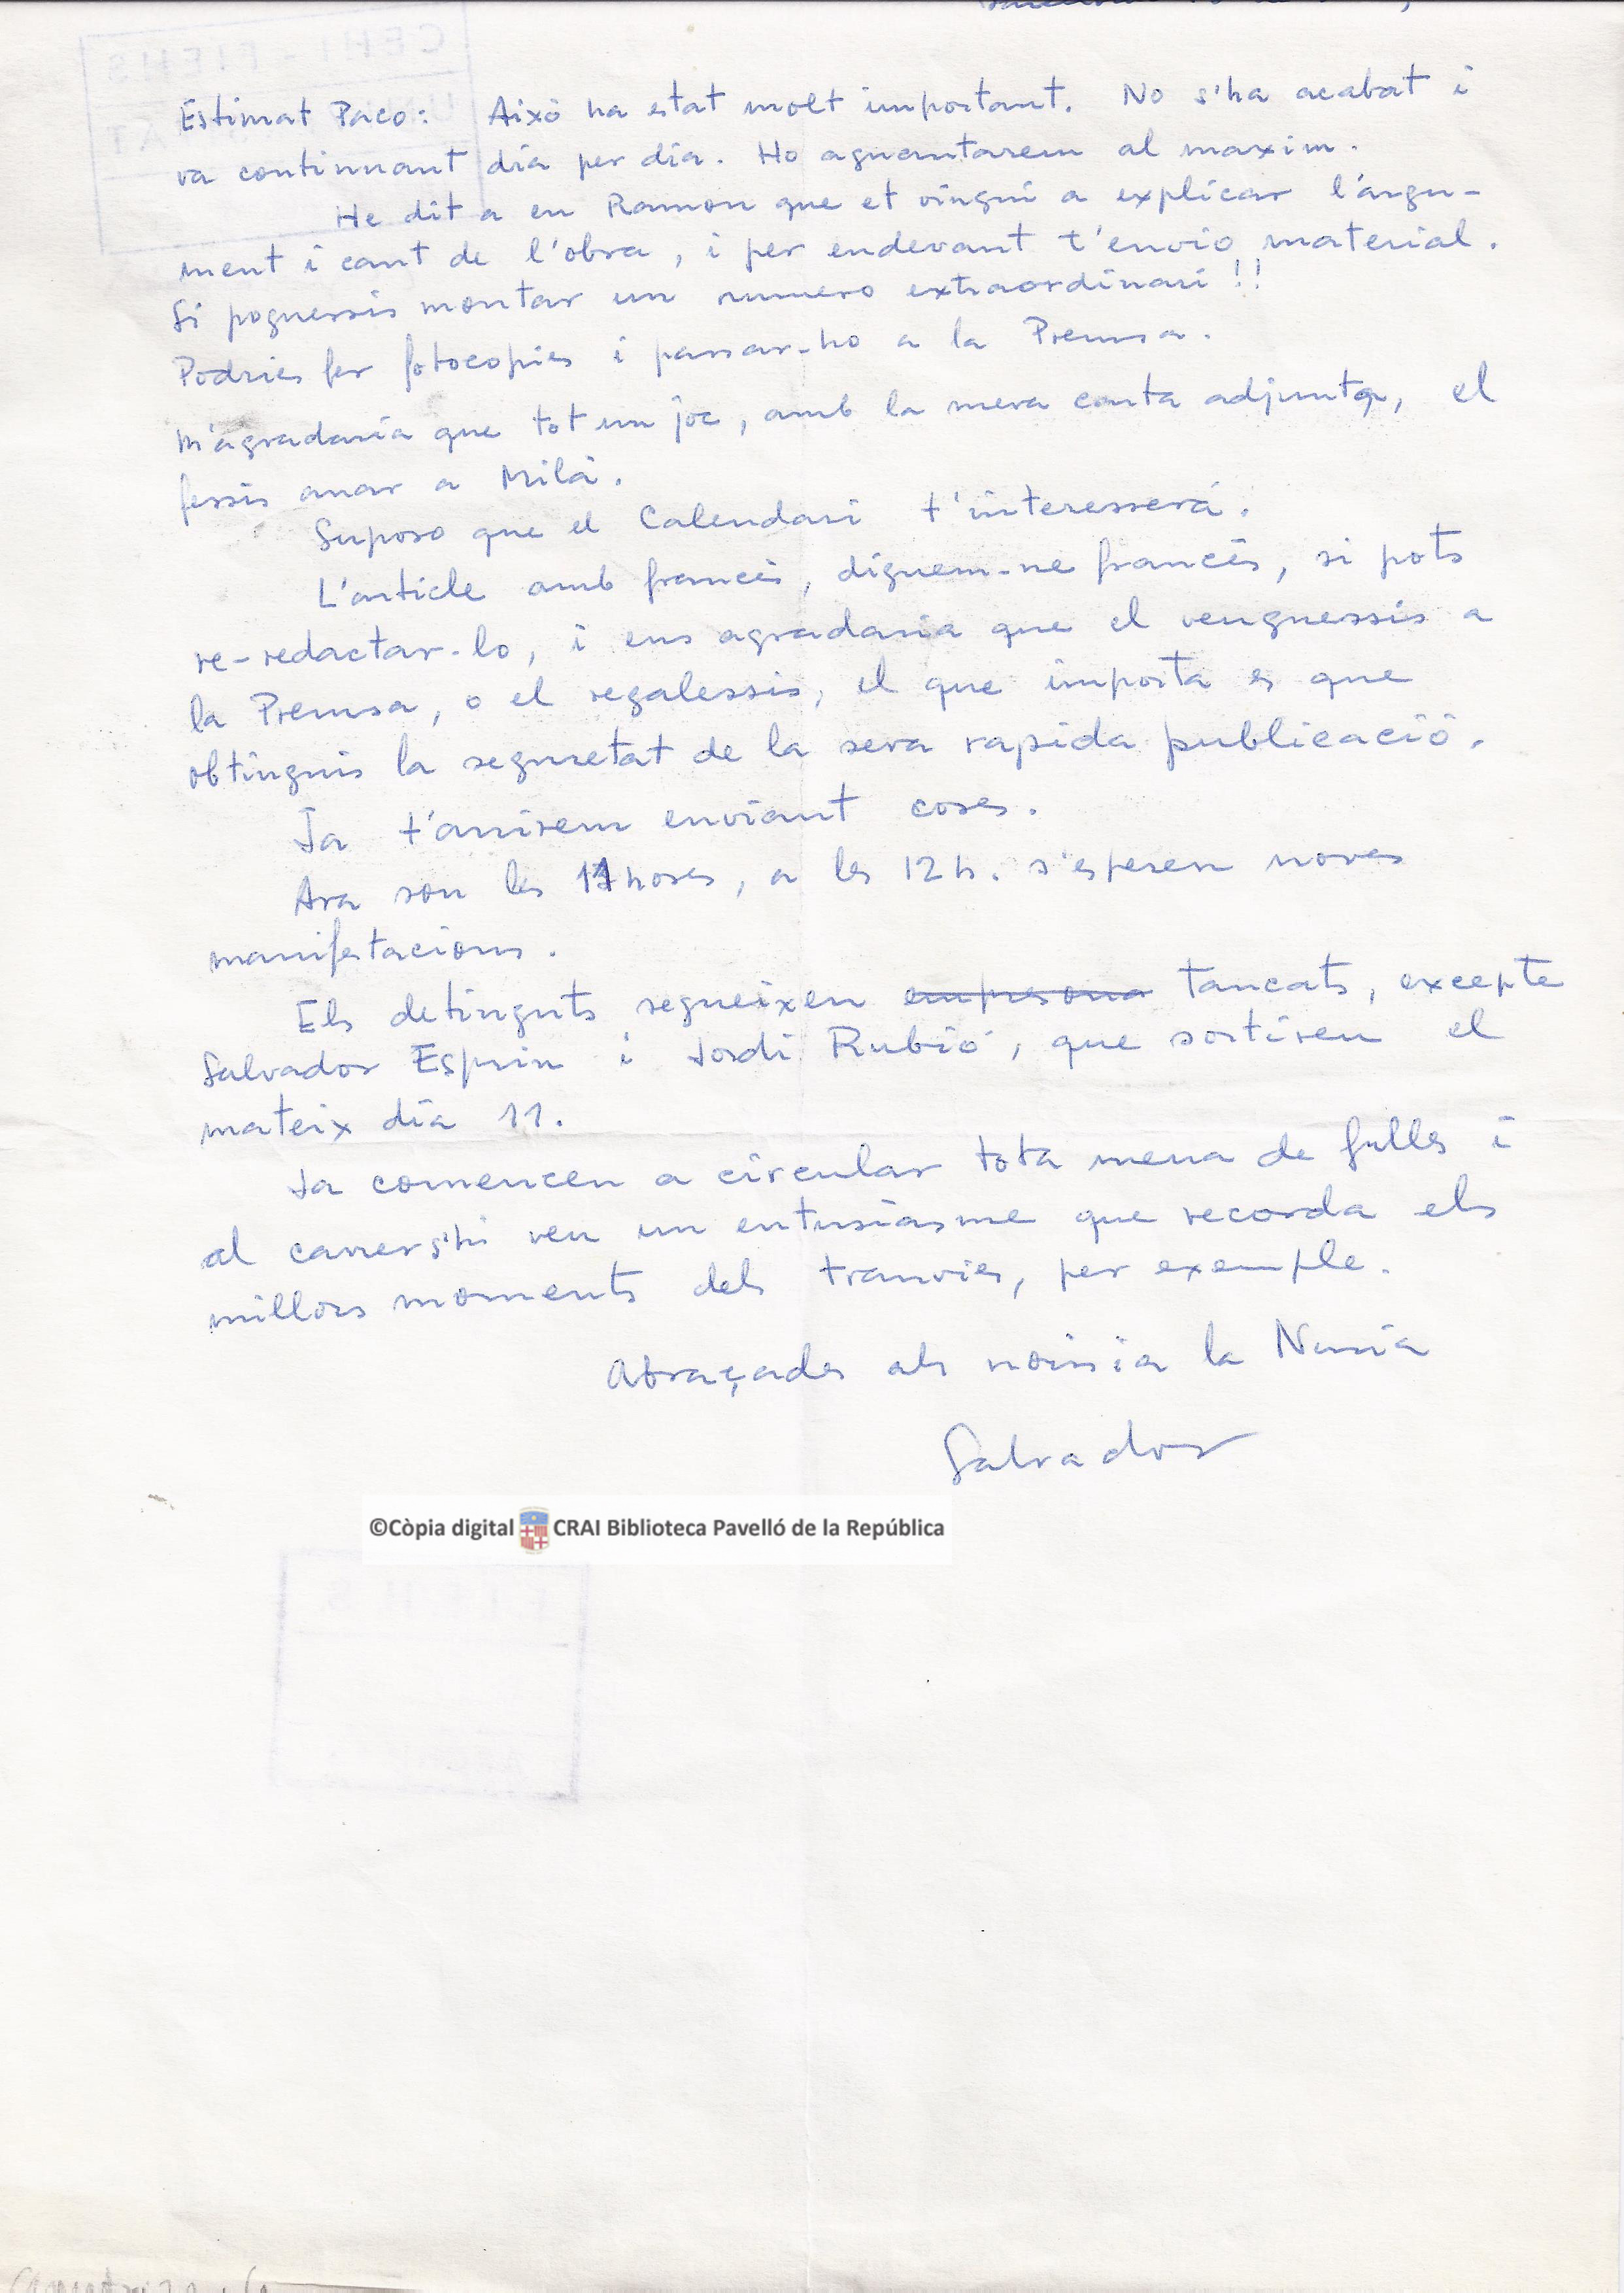 Estimat Paco: Aixó ha estat molt important. No s'ha acabat i
va continuant día per día. Ho aguantarem al maxim.
He dit a en Ramon que et vingui a explicar l'argu-
ment i cant de l'obra, i per endevant t'envio material.
Si poguessis montar un numero extraordinari!!
Podries fer fotocopies i passar-ho a la Premsa.
M'agradaria que tot un joc, amb la meva carta adjunta, el
fessis anar a Milà.
Suposo que el Calendari t'interesserá.
L'article amb francès, diguem-ne francès, si pots
re-redactar-lo, i ens agradaria que el venguessis a
la Premsa, o el regalessis, el que importa es que
obtinguis la seguretat de la seva rapida publicació.
Ja t'anirem enviant coses.
Ara son les 11 hores, a les 12 h. s'esperen noves
manifestacions.
Els detinguts segueixen empresona tancats, excepte
Salvador Espriu i Jordi Rubió, que sortiren el
mateix día 11.
Ja comencen a circular tota mena de fulls i
al carrer s'hi veu un entusiasme que recorda els
millors moments dels tranvies, per exemple.
Abraçades als nois i a la Nuria
Salvador
©Còpia digital CRAI Biblioteca Pavelló de la República